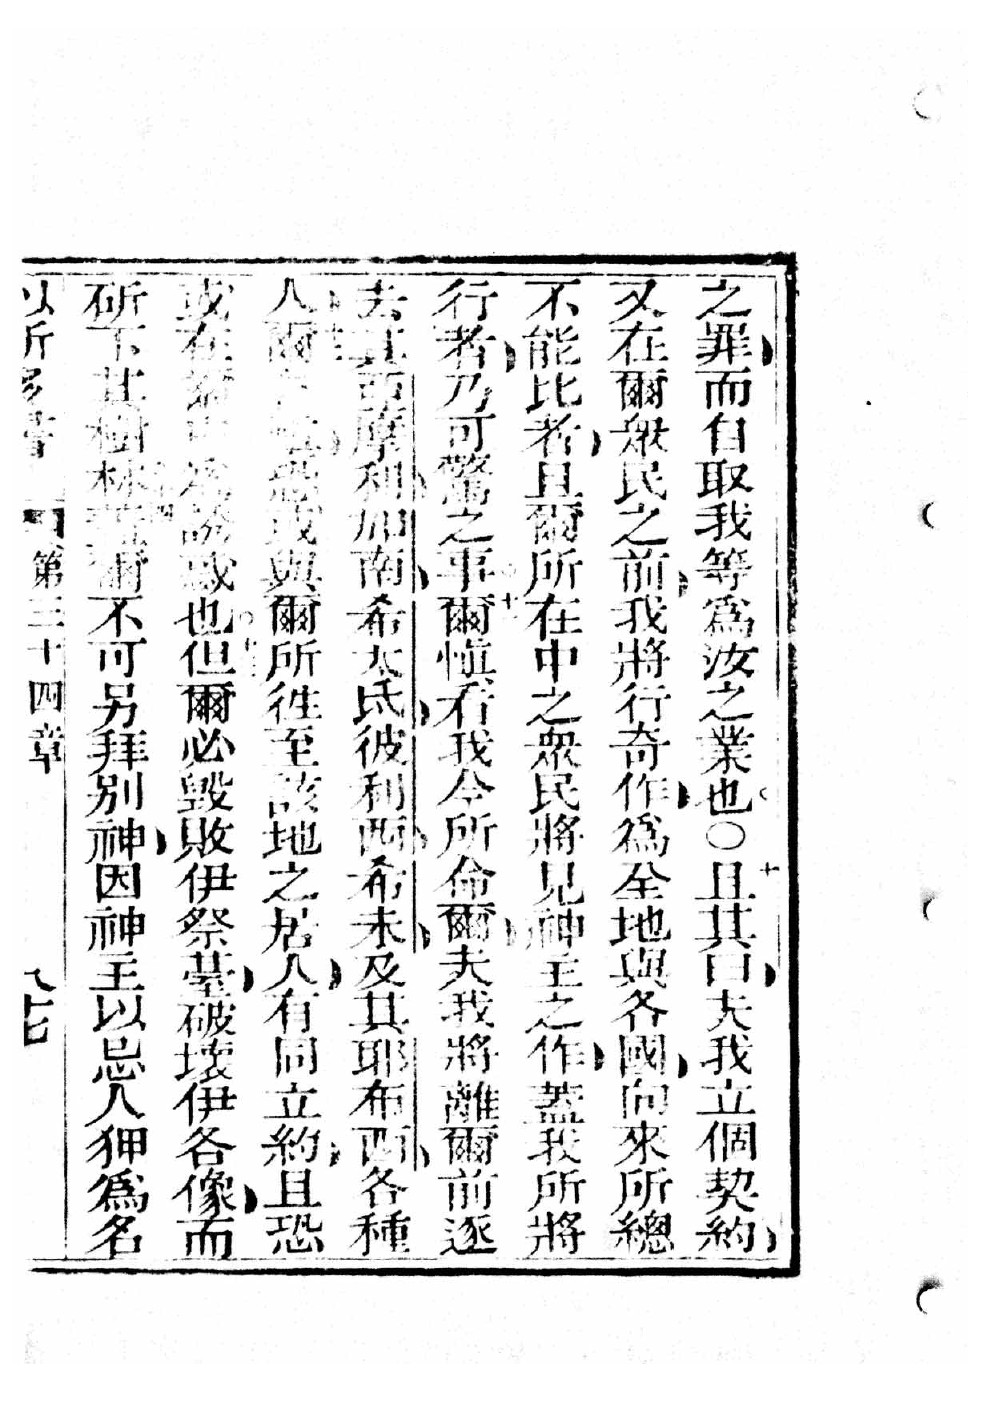 之罪而自取我等爲汝之業也○且其曰夫我立個契約
又在爾衆民之前我將行奇作爲全地與各國向來所總
不能比者且爾所在中之衆民將見神主之作蓋我所將
行者乃可驚之事爾愼看我今所命爾夫我將離爾前逐
去其亞摩利加南希太氏彼利西希未及其耶布西各種
人爾 我與爾所徃至該地之居人有同立約且恐
或在爾 誡也但爾必毀敗伊祭䑓破壞伊各像而
斫下其樹林 爾不可另拜別神因神主以忌人狎爲名
以所多書 第三十四章 八七